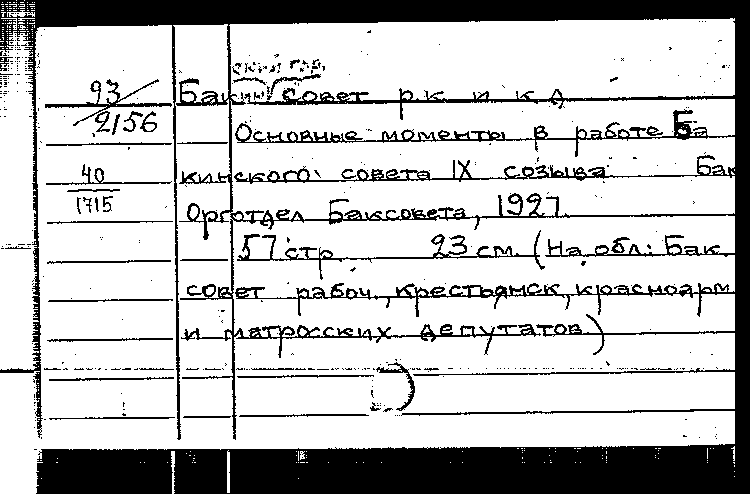 ский гор.
93
Бакин совет р.к и к д
2156
Основные моменты в работе Ба
40
кинского совета IX созыва Бак
1715
Орготдел Баксовета, 1927.
57 стр 23 см. (На обл: Бак.
совет рабоч., крестьянск, красноарм
и матросских депутатов)